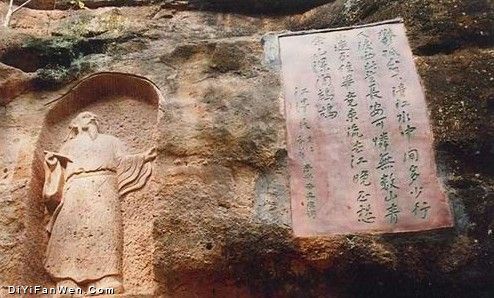 鬱孤台下清江水中間多少行
人淚西北望長安可憐無數山青
山遮不住畢竟東流去江晚正愁
余山深聞鷓鴣
DiYiFanWen.Com